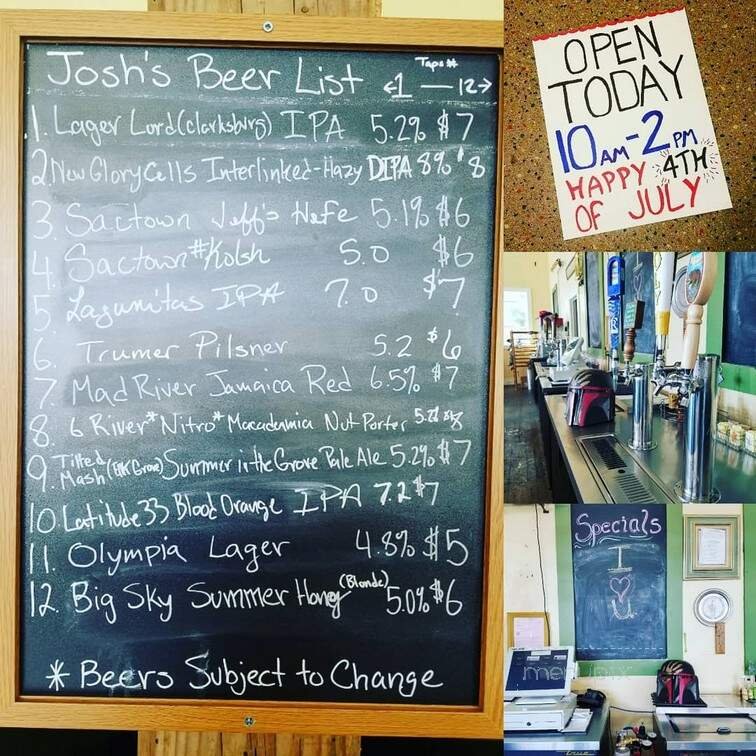 Josh's Beer List Taps # <1 — 12→
1. Lager Lord (Clarksburg) IPA 5.2% $7
2. New Glory Cells Interlinked-Hazy DIPA 8% $8
3. Sactown Jeff's Hefe 5.1% $6
4. Sactown #Kolsh 5.0 $6
5. Lagunitas IPA 7.0 $7
6. Trumer Pilsner 5.2 $6
7. Mad River Jamaica Red 6.5% $7
8. 6 River *Nitro* Macadamia Nut Porter
9. Tilted Mash (Elk Grove) Summer in the Grove Pale Ale 5.2% $7
10. Latitude 33 Blood Orange IPA 7.2 $7
11. Olympia Lager 4.8% $5
12. Big Sky Summer Honey (Blonde) 5.0% $6
* Beers Subject to Change
OPEN
TODAY
10 AM - 2 PM
HAPPY 4TH
OF JULY
Specials
I
♡
U
menupix